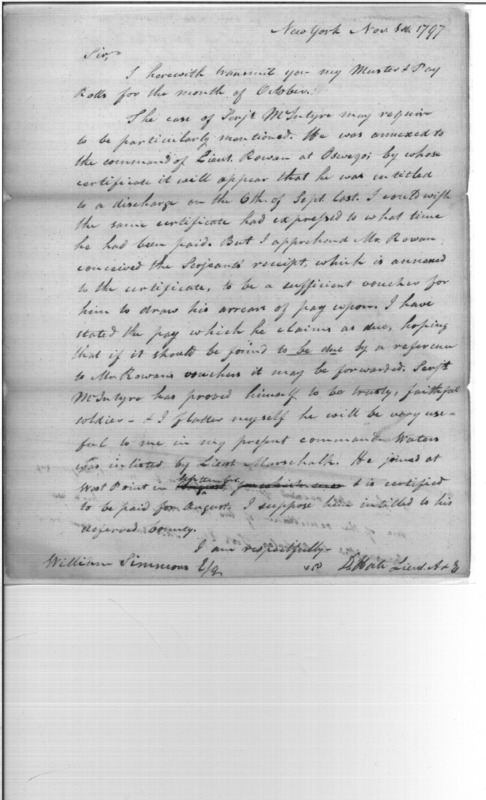 New York Nov. 8th. 1797
Sir,
I herewith transmit you my Muster & Pay
Rolls for the month of October.
The case of Serjt McIntyre may require
to be particularly mentioned. He was annexed to
the command of Lieut. Rowan at Oswego; by whose
certificate it will appear that he was intitled
to a discharge on the 6th. of Sept. last. I could wish
the same certificate had expressed to what time
he had been paid. But I apprehend Mr. Rowan
conceived the Serjeants receipt, which is annexed
to the certificate, to be a sufficient voucher for
him to draw his arrears of pay upon. I have
stated the pay which he claims as due, hoping
that if it should be found to be due by a reference
to Mr. Rowan's vouchers it may be forwarded. Serjt.
McIntyre has proved himself to be trusty, faithful
soldier - & I flatter myself he will be very use-
ful to me in my present command. Waters
was inlisted by Lieut Marschalk. He joined at
West Point in September & is certified
to be paid for August. I suppose him intitled to his
deferred bounty.
I am respectfully
William Simmons Esq. D Hale Lieut. A & E